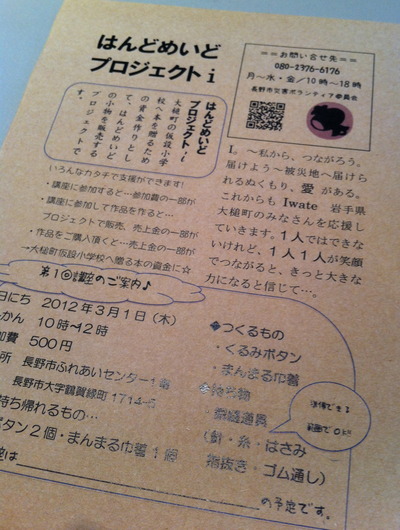 はんどめいど
プロジェクト i
==お問い合せ先==
080-2376-6176
月～水・金/10時~18時
長野市災害ボランティア委員会
はんどめいど
プロジェクト・i
大槌町の仮設小学
校へ本を贈るため
の資金作りとし
て、はんどめいど
の小物を販売する
プロジェクトで
す。
I。～私から、つながろう。
届けよう～被災地へ届けら
れるぬくもり、愛 がある。
これからも Iwate 岩手県
大槌町のみなさんを応援し
ていきます。1人ではできな
いけれど、1人1人が笑顔
でつながると、きっと大きな
力になると信じて…。
いろんなカタチで支援ができます!
・講座に参加すると…参加費の一部が
・講座に参加して作品を作ると…
プロジェクトで販売、売上金の一部が
・作品をご購入頂くと…売上金の一部が
→大槌町仮設小学校へ贈る本の資金に☆
第1回講座のご案内♪
日にち 2012年3月1日(木)
かん 10時~12時
加費 500円
所 長野市ふれあいセンター1階
長野市大字鶴賀緑町1714-5
持ち帰れるもの…
ボタン2個・まんまる巾着1個
◆つくるもの
・くるみボタン
・まんまる巾着
◆持ち物
・裁縫道具
(針・糸・はさみ
指抜き・ゴム通し)
準備できる
範囲でOK!
は
の予定です。